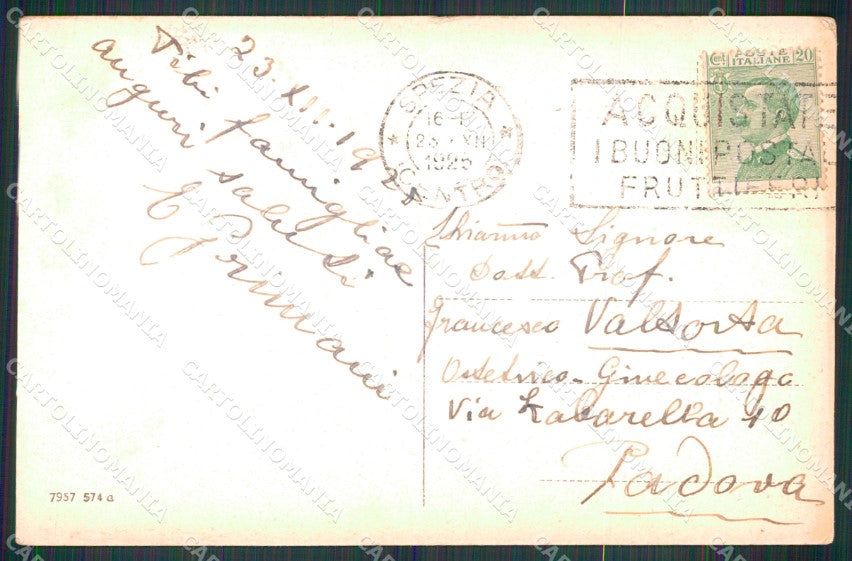 23.XII.1925
Tibi famigliae
auguri saluti
E
SPEZIA
16-
23 · XII
1925
(CENTRO)
ACQUISTATE
I BUONI POSTALI
FRUTTIFERI
POSTE ITALIANE
Cent 20
Chiarmo Signore
Dott. Prof.
Francesco Valtorta
Ostetrico-Ginecologo
Via Zabarella 10
Padova
7957 574 a
CARTOLINOMANIA